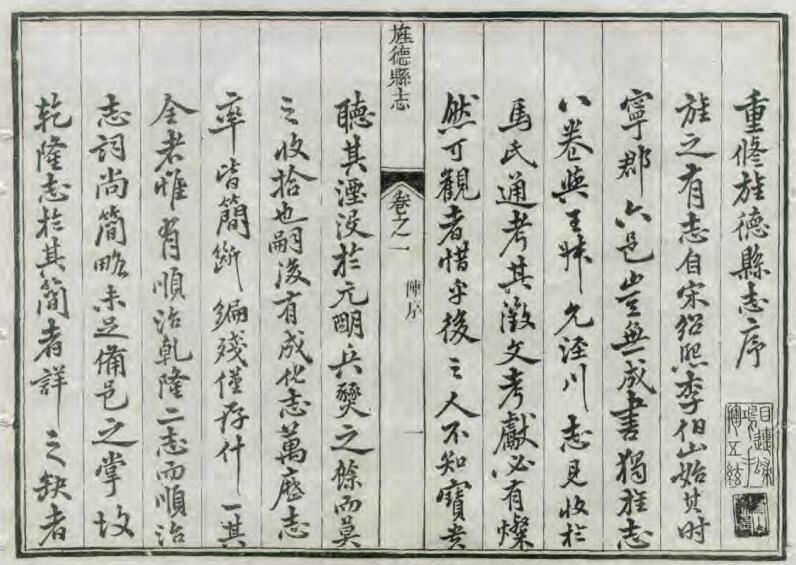 重修旌德縣志序
旌之有志自宋紹熙李伯山始其時
寧郡六邑豈無成書獨旌志
八卷與王昹允涇川志見收於
馬氏通考其徵文考獻必有燦
然可觀者惜乎後之人不知寶貴
旌德縣志
卷之一
陳序
一
聽其湮沒於元明兵燹之餘而莫
之收拾也嗣後有成化志萬歷志
率皆簡斷編殘僅存什一其
全者惟有順治乾隆二志而順治
志詞尚簡略未足備邑之掌故
乾隆志於其簡者詳之缺者